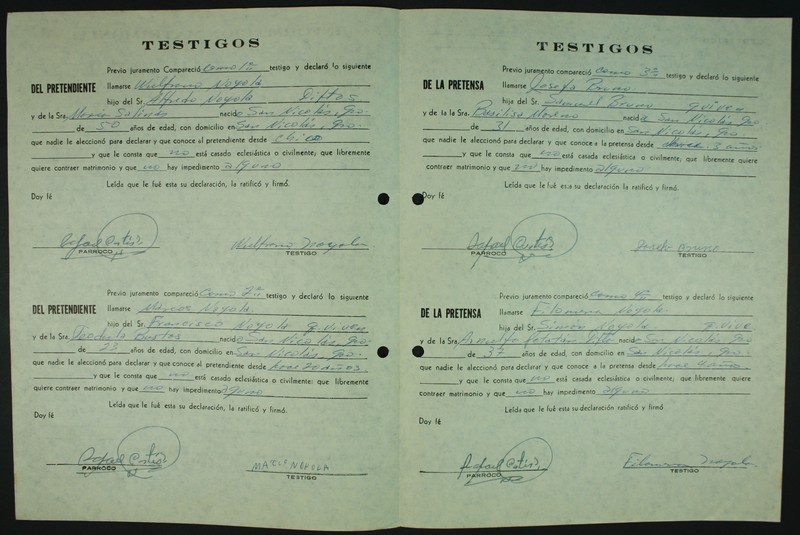 TESTIGOS
Previo juramento Compareció como 1er testigo y declaró lo siguiente
DEL PRETENDIENTE
llamarse Wulfrano Noyola
hijo del Sr. Alfredo Noyola Diftos
y de la Sra. María Salinas nacido San Nicolás, Gro.
de 50 años de edad, con domicilio en San Nicolás, Gro.
que nadie le aleccionó para declarar y que conoce al pretendiente desde chico
y que le consta que no está casado eclesiástica o civilmente; que libremente
quiere contraer matrimonio y que no hay impedimento alguno
Leída que le fué esta su declaración, la ratificó y firmó.
Doy fé
Rafael Ortiz
PARROCO
Wulfrano Noyola
TESTIGO
Previo juramento compareció como 2o testigo y declaró lo siguiente
DEL PRETENDIENTE
llamarse Marcos Noyola
hijo del Sr. Francisco Noyola q. viven
y de la Sra. Teodula Bustos nacido San Nicolás, Gro.
de 23 años de edad, con domicilio en San Nicolás, Gro.
que nadie le aleccionó para declarar y que conoce al pretendiente desde hace 20 años.
y que le consta que no está casado eclesiástica o civilmente: que libremente
quiere contraer matrimonio y que no hay impedimento alguno
Leída que le fué esta su declaración, la ratificó y firmó.
Doy fé
Rafael Ortiz
PARROCO
NOYOLA
TESTIGO
TESTIGOS
Previo juramento compareció como 3o testigo y declaró lo siguiente
DE LA PRETENSA
llamarse Josefa Bruno
hijo del Sr. Samuel Bruno q. viven
y de la Sra. Basilisa Moreno nacida San Nicolás Gro.
de 31 años de edad, con domicilio en San Nicolás, Gro.
que nadie le aleccionó para declarar y que conoce a la pretensa desde 3 años
y que le consta que no está casada eclesiástica o civilmente, que libremente quiere
contraer matrimonio y que no hay impedimento alguno
Leída que le fué esta su declaración la ratificó y firmó.
Doy fé
Rafael Ortiz
PARROCO
Josefa Bruno
TESTIGO
Previo juramento compareció como 4o testigo y declaró lo siguiente
DE LA PRETENSA
llamarse Filomena Noyola
hija del Sr. Simón Noyola q. vive
y de la Sra. nacida San Nicolás Gro
de 37 años de edad, con domicilio en San Nicolás, Gro.
que nadie le aleccionó para declarar y que conoce a la pretensa desde hace 4 años.
y que le consta que no está casada eclesiástica o civilmente, que libremente quiere
contraer matrimonio y que no hay impedimento alguno
Leída que le fué esta su declaración, la ratificó y firmó.
Doy fé
Rafael Ortiz
PARROCO
Filomena Noyola
TESTIGO